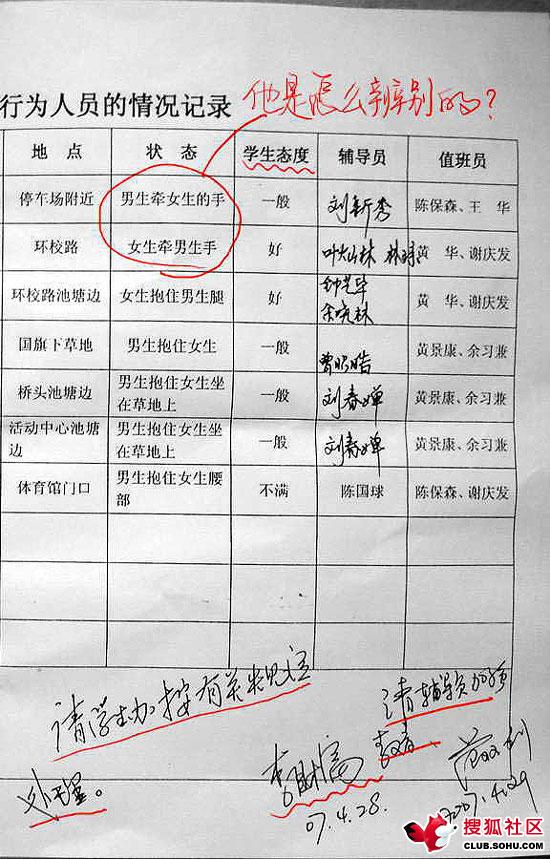 行为人员的情况记录 他是怎么辨别的?
地点 状态 学生态度 辅导员 值班员
停车场附近 男生牵女生的手 一般 刘新秀 陈保森、王华
环校路 女生牵男生手 好 黄华、谢庆发
环校路池塘边 女生抱住男生腿 好 黄华、谢庆发
国旗下草地 男生抱住女生 一般 黄景康、余习兼
桥头池塘边 男生抱住女生坐 一般 刘春婵 黄景康、余习兼
在草地上
活动中心池塘 男生抱住女生坐 一般 刘春婵 黄景康、余习兼
边 在草地上
体育馆门口 男生抱住女生腰 不满 陈国球 陈保森、谢庆发
部
请学生办按有关规定
请辅导员
处理。
07.4.28.
搜狐社区
CLUB.SOHU.COM